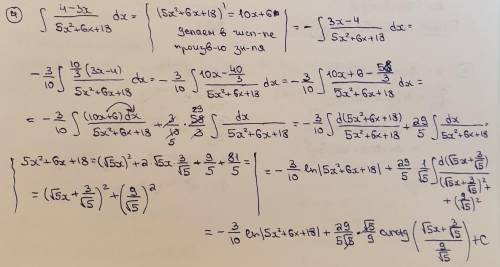 ④ ∫ (4-3x)/(5x²+6x+18) dx = | (5x²+6x+18)' = 10x+6 делаем в числ-ле произв-ю зн-ля | = -∫ (3x-4)/(5x²+6x+18) dx =
-3/10 ∫ (10/3 (3x-4))/(5x²+6x+18) dx = -3/10 ∫ (10x - 40/3)/(5x²+6x+18) dx = -3/10 ∫ (10x+6 - 58/3)/(5x²+6x+18) dx =
= -3/10 ∫ ((10x+6)dx)/(5x²+6x+18) + 3/10 · 58/3 ∫ dx/(5x²+6x+18) = -3/10 ∫ d(5x²+6x+18)/(5x²+6x+18) + 29/5 ∫ dx/(5x²+6x+18) =
| 5x²+6x+18 = (√5x)² + 2·√5x·3/√5 + 9/5 + 81/5 = = (√5x + 3/√5)² + (9/√5)² |
= -3/10 ln|5x²+6x+18| + 29/5 · 1/√5 ∫ d(√5x + 3/√5)/((√5x + 3/√5)² + (9/√5)²) =
= -3/10 ln|5x²+6x+18| + 29/(5√5) · √5/9 arctg((√5x + 3/√5)/(9/√5)) + C